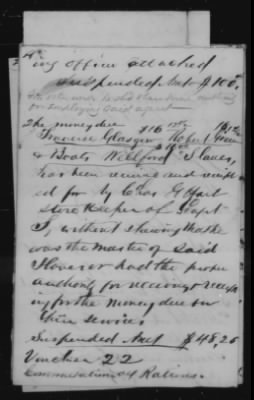 ing officer attached
Suspended Amt $100.
for employing said agent
The money due $16
Francise Glasgow Robert Green
& Boats Wellford Slaves,
has been received and receipt
ed for by Chas G Hart
Store Keeper of Dept
, without showing that he
was the Master of said
Slaves or had the proper
authority for receiving & receipt
ing for the money due on
their services
Suspended Amt $48,25
Voucher 22
Commutation of Rations.